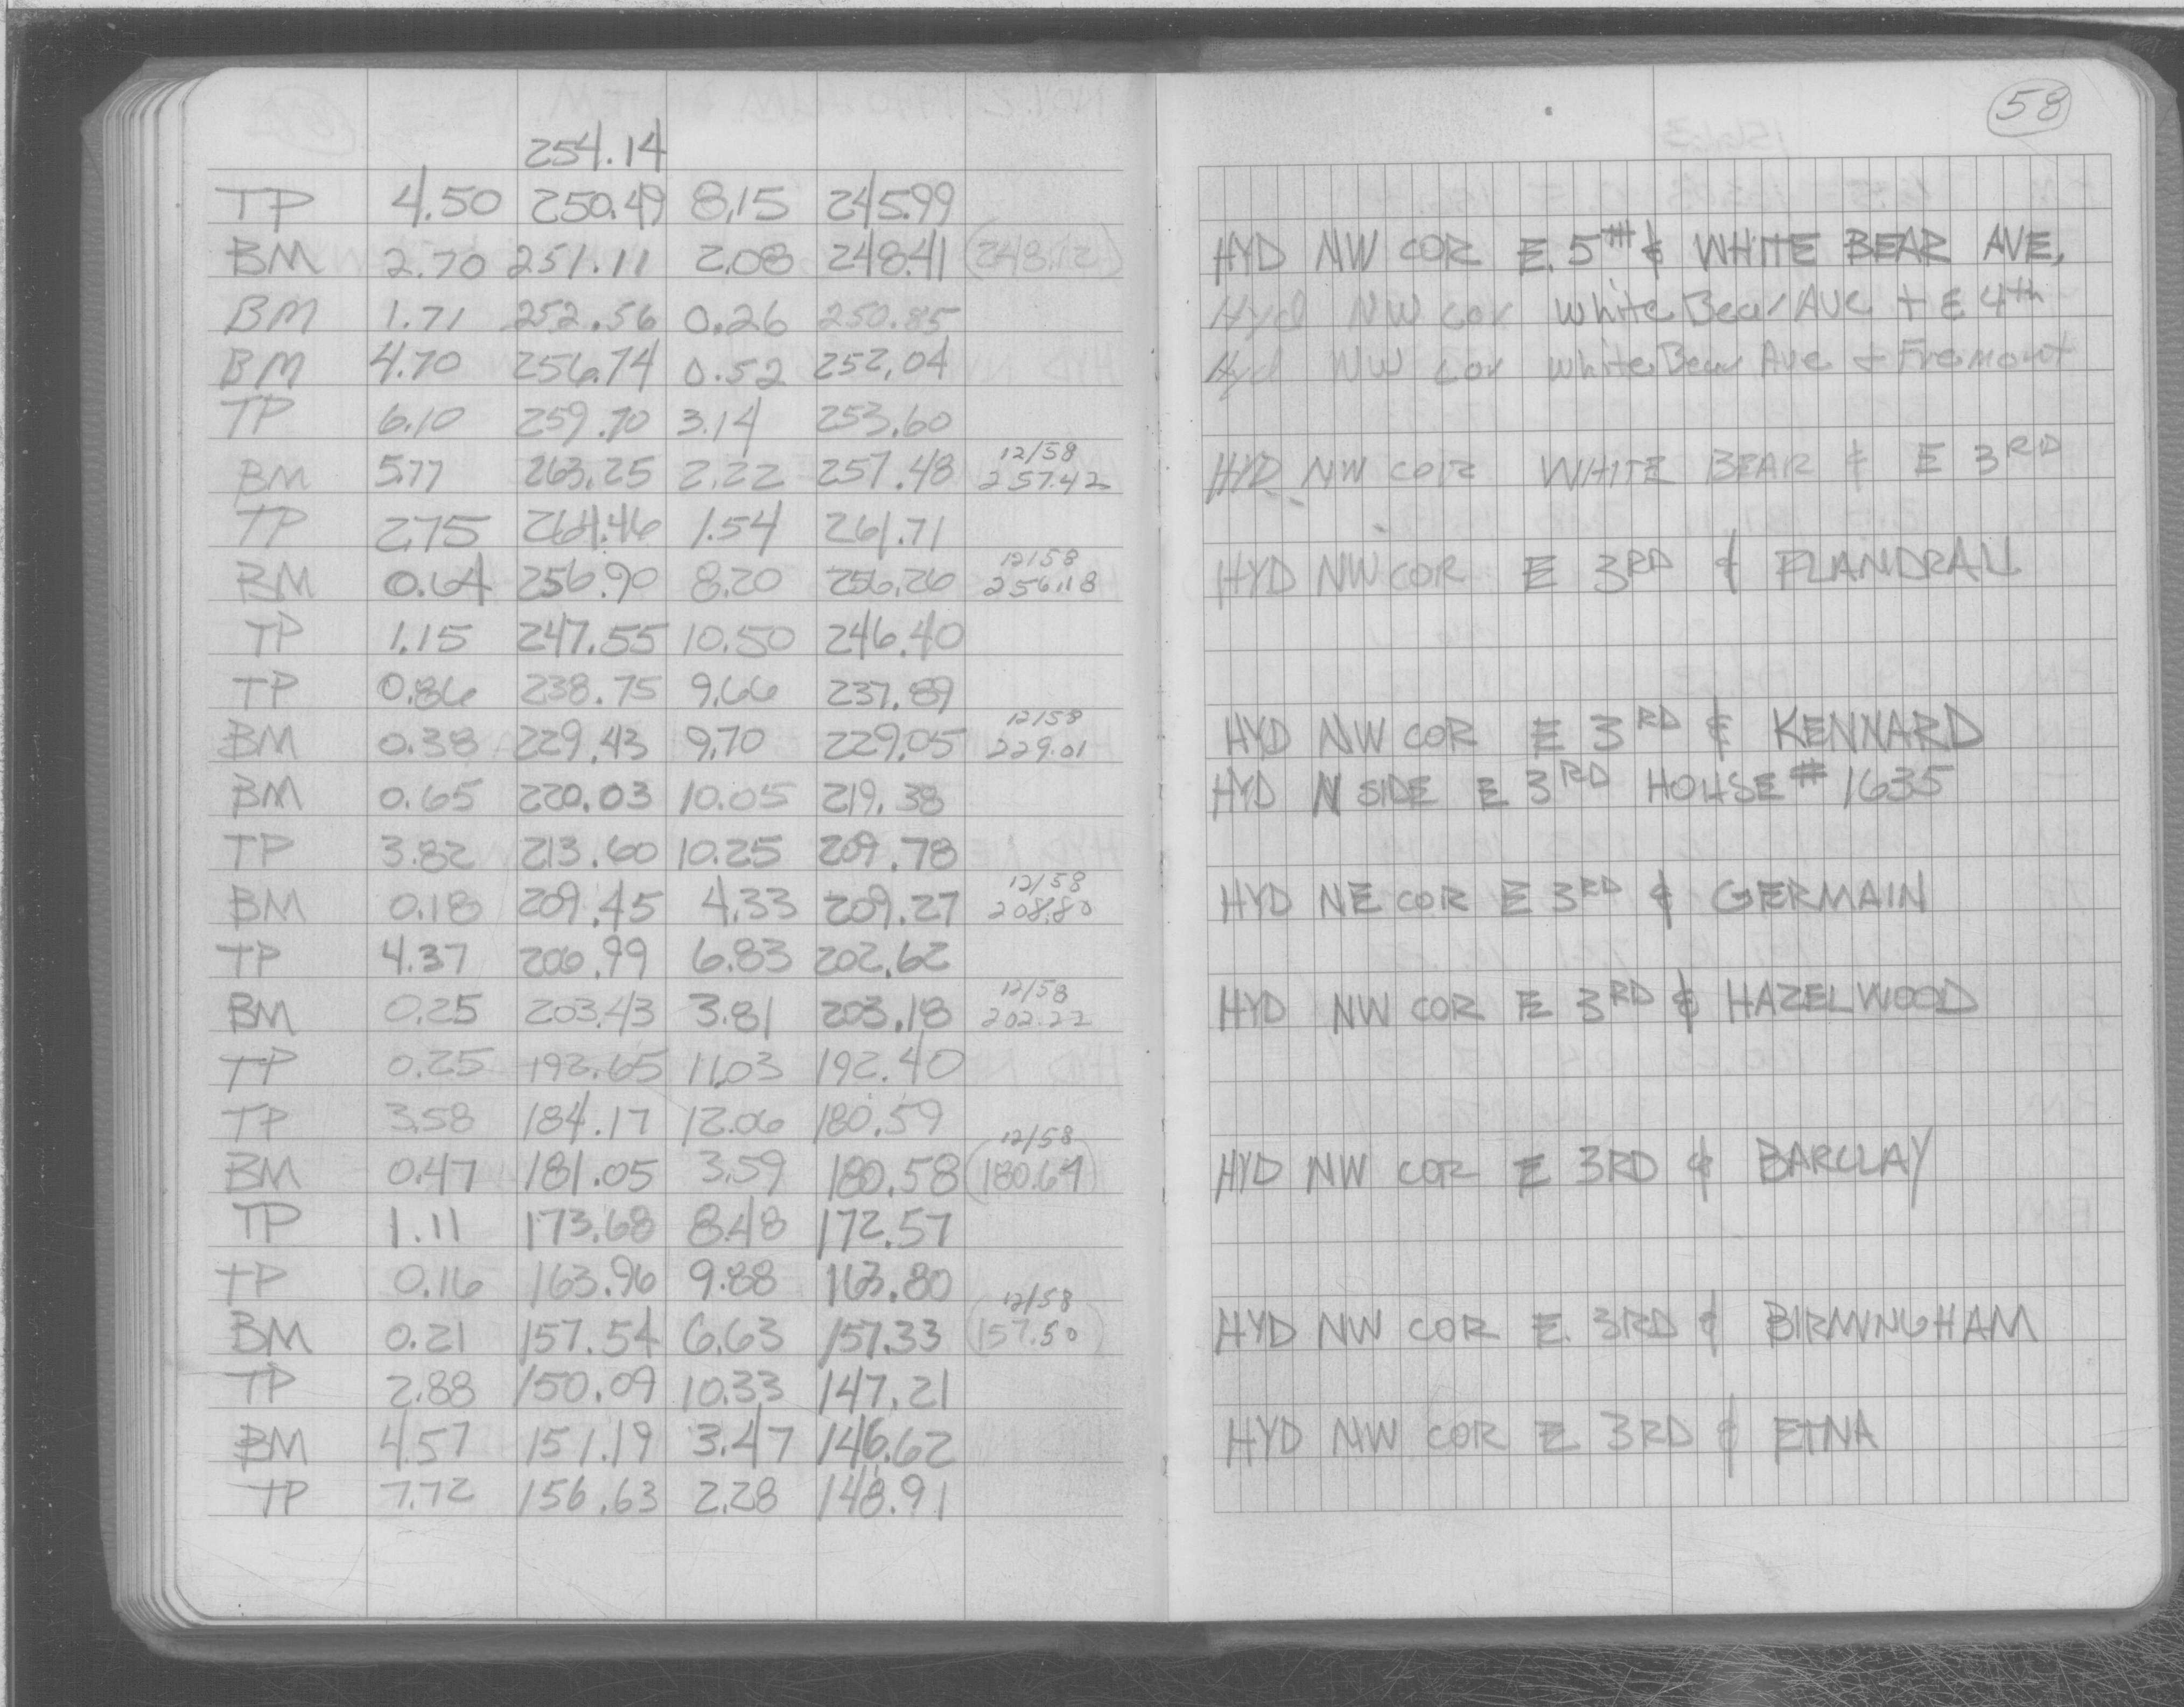 58
254.14
TP 4.50 250.49 8.15 245.99
BM 2.70 251.11 2.08 248.41 (248.12) HYD NW COR E. 5TH & WHITE BEAR AVE,
BM 1.71 252.56 0.26 250.85 Hyd NW cor White Bear AVE + E 4th
BM 4.70 256.74 0.52 252.04 Hyd NW cor White Bear Ave + Fremont
TP 6.10 259.70 3.14 253.60
12/58
BM 5.77 263.25 2.22 257.48 257.42 HYD NW COR WHITE BEAR & E 3RD
TP 2.75 264.46 1.54 261.71
12/58
BM 0.64 256.90 8.20 256.26 256.18 HYD NW COR E 3RD & FLANDRAU
TP 1.15 247.55 10.50 246.40
TP 0.86 238.75 9.66 237.89
12/58
BM 0.38 229.43 9.70 229.05 229.01 HYD NW COR E 3RD & KENNARD
BM 0.65 220.03 10.05 219.38 HYD N SIDE E 3RD HOUSE # 1635
TP 3.82 213.60 10.25 209.78
12/58
BM 0.18 209.45 4.33 209.27 208.80 HYD NE COR E 3RD & GERMAIN
TP 4.37 206.99 6.83 202.62
12/58
BM 0.25 203.43 3.81 203.18 202.22 HYD NW COR E 3RD & HAZELWOOD
TP 0.25 192.65 11.03 192.40
TP 3.58 184.17 12.06 180.59
12/58
BM 0.47 181.05 3.59 180.58 (180.64) HYD NW COR E 3RD & BARCLAY
TP 1.11 173.68 8.48 172.57
TP 0.16 163.96 9.88 163.80
12/58
BM 0.21 157.54 6.63 157.33 (157.50) HYD NW COR E. 3RD & BIRMINGHAM
TP 2.88 150.09 10.33 147.21
BM 4.57 151.19 3.47 146.62 HYD NW COR E 3RD & ETNA
TP 7.72 156.63 2.28 148.91